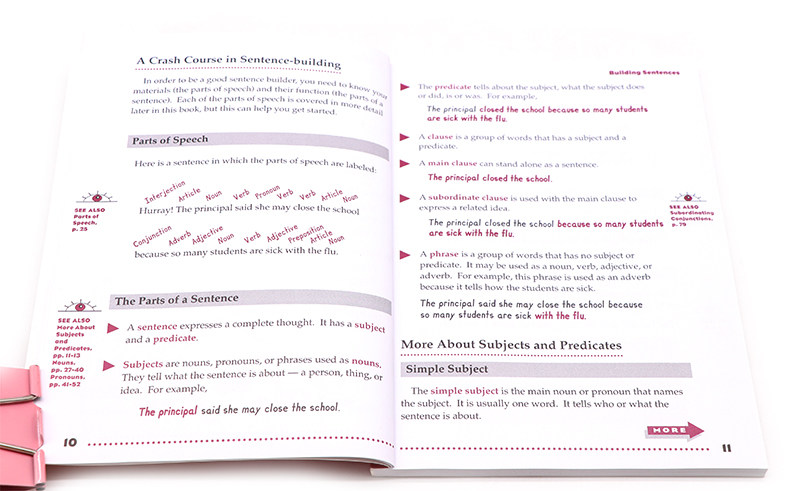 A Crash Course in Sentence-building
In order to be a good sentence builder, you need to know your
materials (the parts of speech) and their function (the parts of a
sentence). Each of the parts of speech is covered in more detail
later in this book, but this can help you get started.
Parts of Speech
Here is a sentence in which the parts of speech are labeled:
Interjection Article Noun Verb Pronoun Verb Verb Article Noun
Hurray! The principal said she may close the school
SEE ALSO
Parts of
Speech,
p. 25
Conjunction Adverb Adjective Noun Verb Adjective Preposition Article Noun
because so many students are sick with the flu.
The Parts of a Sentence
SEE ALSO
More About
Subjects
and
Predicates,
pp. 11-13
Nouns,
pp. 27-40
Pronouns,
pp. 41-52
A sentence expresses a complete thought. It has a subject
and a predicate.
Subjects are nouns, pronouns, or phrases used as nouns.
They tell what the sentence is about — a person, thing, or
idea. For example,
The principal said she may close the school.
10
Building Sentences
The predicate tells about the subject, what the subject does
or did, is or was. For example,
The principal closed the school because so many students
are sick with the flu.
A clause is a group of words that has a subject and a
predicate.
A main clause can stand alone as a sentence.
The principal closed the school.
A subordinate clause is used with the main clause to
express a related idea.
SEE ALSO
Subordinating
Conjunctions,
p. 79
The principal closed the school because so many students
are sick with the flu.
A phrase is a group of words that has no subject or
predicate. It may be used as a noun, verb, adjective, or
adverb. For example, this phrase is used as an adverb
because it tells how the students are sick.
The principal said she may close the school because
so many students are sick with the flu.
More About Subjects and Predicates
Simple Subject
The simple subject is the main noun or pronoun that names
the subject. It is usually one word. It tells who or what the
sentence is about.
MORE
11